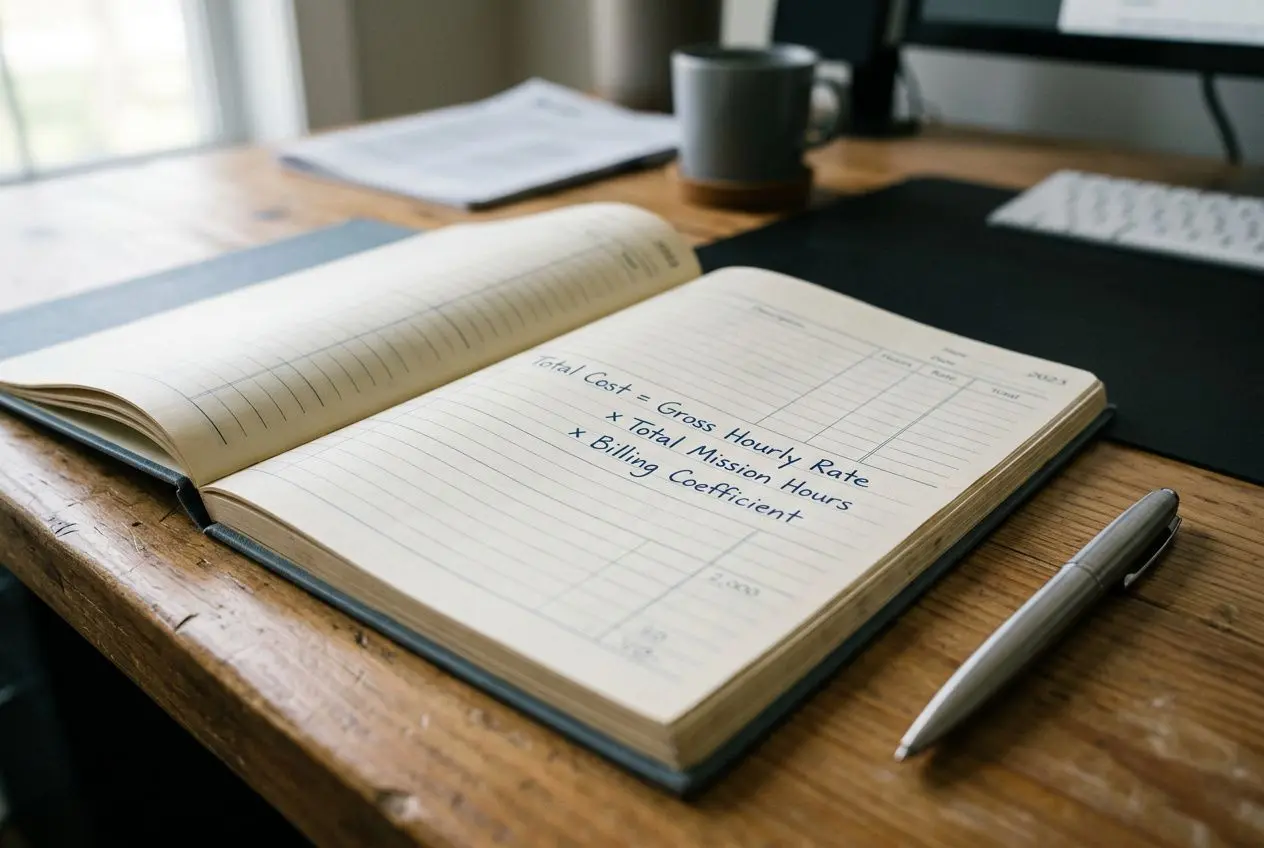 2023
Hours
Rate
Total
Total Cost = Gross Hourly Rate
x Total Mission Hours
x Billing Coefficient
2,000